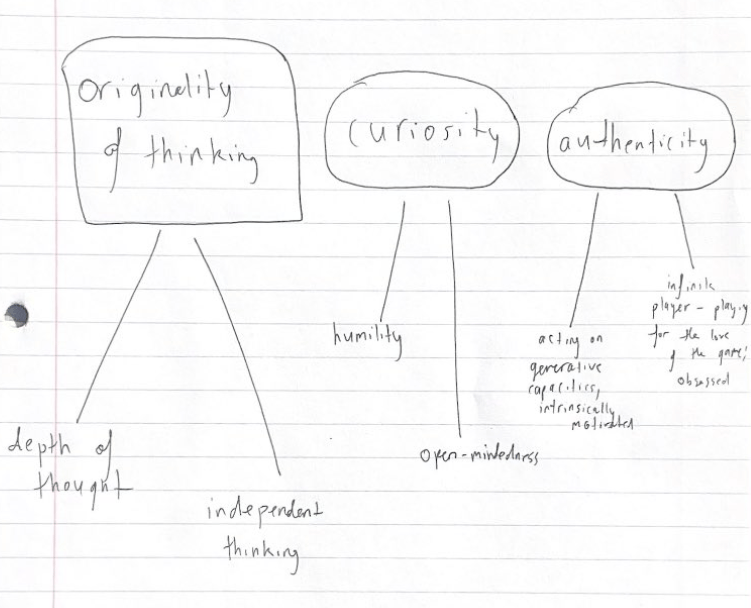 originality
of thinking
curiosity
authenticity
depth of
thought
independent
thinking
humility
open-mindedness
acting on
generative
capacities,
intrinsically
motivated
infinite
player - playing
for the love
of the game!
obsessed